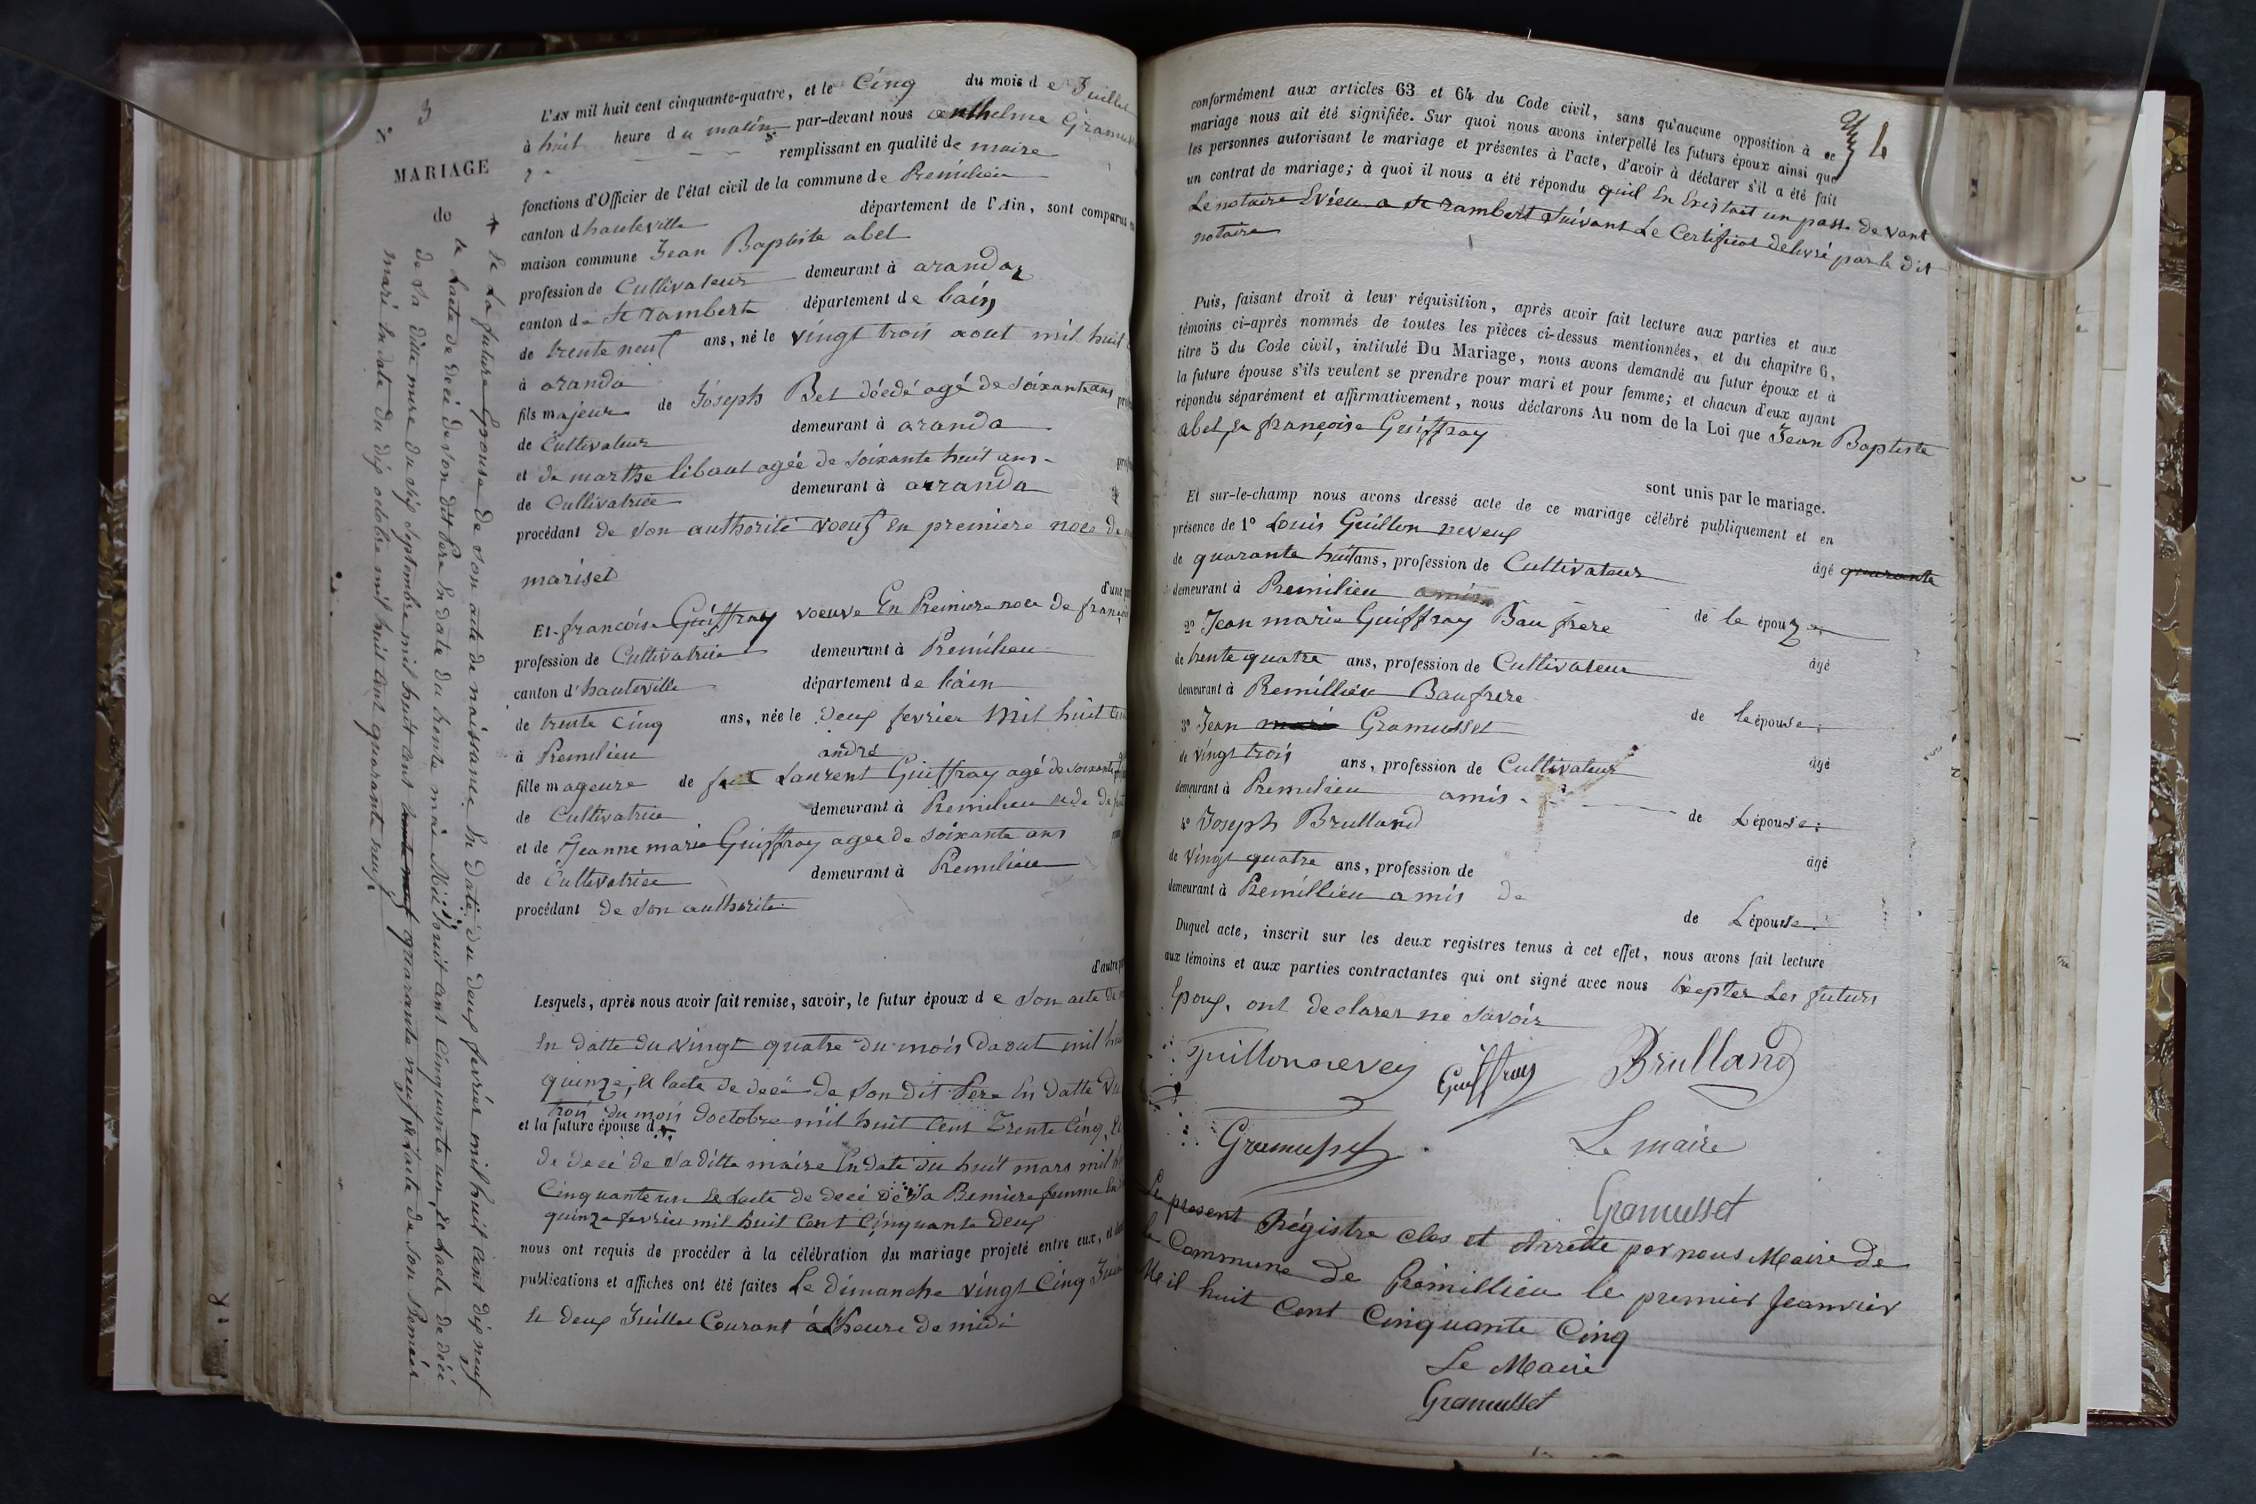 N° 3
MARIAGE
de
L'AN mil huit cent cinquante-quatre, et le Cinq du mois de Juillet
à huit heure du matin par-devant nous anthelme Gramu
remplissant en qualité de maire
fonctions d'Officier de l'état civil de la commune de Prémilieu
canton d hauteville département de l'Ain, sont comparus en
maison commune Jean Baptiste abel
profession de Cultivateur demeurant à arandaz
canton de St rambert département de lain
de trente neuf ans, né le vingt trois aout mil huit
à aranda
fils majeur de Joseph Bel déedé agé de soixante ans
de Cultivateur demeurant à aranda
et de marthe libaut agée de soixante huit ans
de Cultivatrice demeurant à arranda
procédant de son authorité voeuf en premiere noce de
mariset
d'une
Et françoise Guiffray voeuve En Premiere noce de franç
profession de Cultivatrice demeurant à Prémilieu
canton d'hauteville département de lain
de trente cinq ans, née le deux fevrier mil huit
à Premilieu
andré
fille mageure de Laurent Guiffray agé de soixante
de Cultivatrice demeurant à Premilieu
et de Jeanne marie Guiffray agée de soixante ans
de Cultivatrice demeurant à Premilieu
procédant de son authorité
d'autre
Lesquels, après nous avoir fait remise, savoir, le futur époux de son acte de
En datte du vingt quatre du mois daout mil
quinze, et lacte de decé de son dit Pere En datte du
trois du mois doctobre mil huit Cent Trente Cinq, et
et la future épouse d
de decé de sa ditte maire En date du huit mars mil
Cinquante un et lacte de decé de sa Premiere femme
quinze fevrier mil huit Cent Cinquante deux
nous ont requis de procéder à la célébration du mariage projeté entre eux,
publications et affiches ont été faites Le dimanche vingt Cinq Juin
le deux Juillet Courant à Lheure de midi
de La future Epouse de son acte de naissance En date du deux fevrier mil huit Cent dix neuf
et Lacte de decé de son dit Pere En date du trente mai Mil huit Cent Cinquante un, et Lacte de décé
de sa ditte mere du dix septembre mil huit cent quarante neuf et lacte de son Premier
mari En date du dix octobre mil huit Cent quarante neuf
4
conformément aux articles 63 et 64 du Code civil, sans qu'aucune opposition à ce
mariage nous ait été signifiée. Sur quoi nous avons interpellé les futurs époux ainsi que
les personnes autorisant le mariage et présentes à l'acte, d'avoir à déclarer s'il a été fait
un contrat de mariage; à quoi il nous a été répondu quil En Existait un passé devant
Le notaire Evieu a St rambert suivant Le Certificat delivré par le dit
notaire
Puis, faisant droit à leur réquisition, après avoir fait lecture aux parties et aux
témoins ci-après nommés de toutes les pièces ci-dessus mentionnées, et du chapitre 6,
titre 5 du Code civil, intitulé Du Mariage, nous avons demandé au futur époux et à
la future épouse s'ils veulent se prendre pour mari et pour femme; et chacun d'eux ayant
répondu séparément et affirmativement, nous déclarons Au nom de la Loi que Jean Baptiste
abel, et françoise Guiffray
sont unis par le mariage.
Et sur-le-champ nous avons dressé acte de ce mariage célébré publiquement et en
présence de 1° Louis Guillon neveuf âgé quarante
de quarante huit ans, profession de Cultivateur
demeurant à Premilieu amis de le épouz
2° Jean marie Guiffray Bau frere âgé
de trente quatre ans, profession de Cultivateur
demeurant à Premillieu Baufrere de leépouse
3° Jean Gramusset âgé
de vingt trois ans, profession de Cultivateur
demeurant à Premilieu amis de Lépouse
4° Joseph Brulland âgé
de vingt quatre ans, profession de
demeurant à Premillieu amis de de Lépouse
Duquel acte, inscrit sur les deux registres tenus à cet effet, nous avons fait lecture
aux témoins et aux parties contractantes qui ont signé avec nous Exepter Les futurs
Epoux, ont declarer ne savoir
Guillonnevey Guiffray Brulland
Gramusset Le maire
Gramusset
Le present Régistre clos et Arretté par nous Maire de
la Commune de Prémillieu le premier Jeanvier
Mil huit Cent Cinquante Cinq
Le Maire
Gramusset